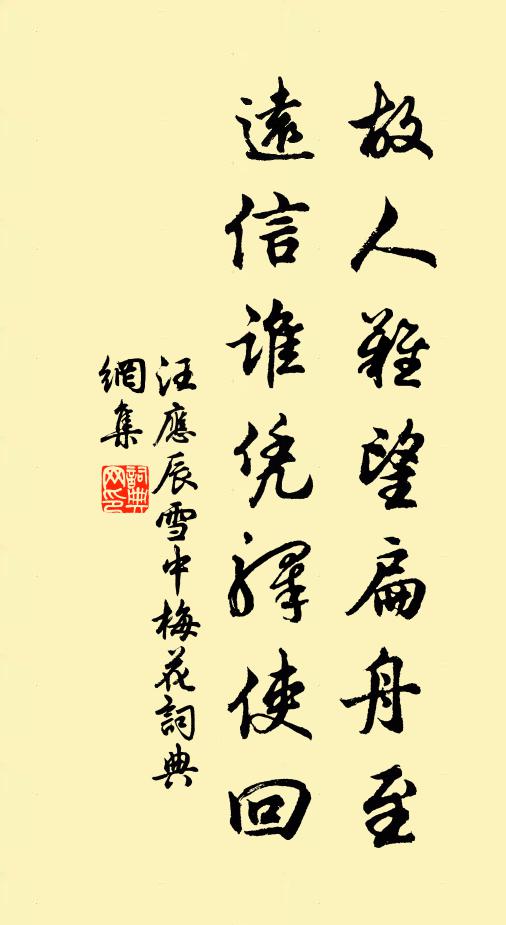 故人難望扁舟至
遠信誰凭驛使回
汪應辰雪中梅花詞典
網集
詞典
网印